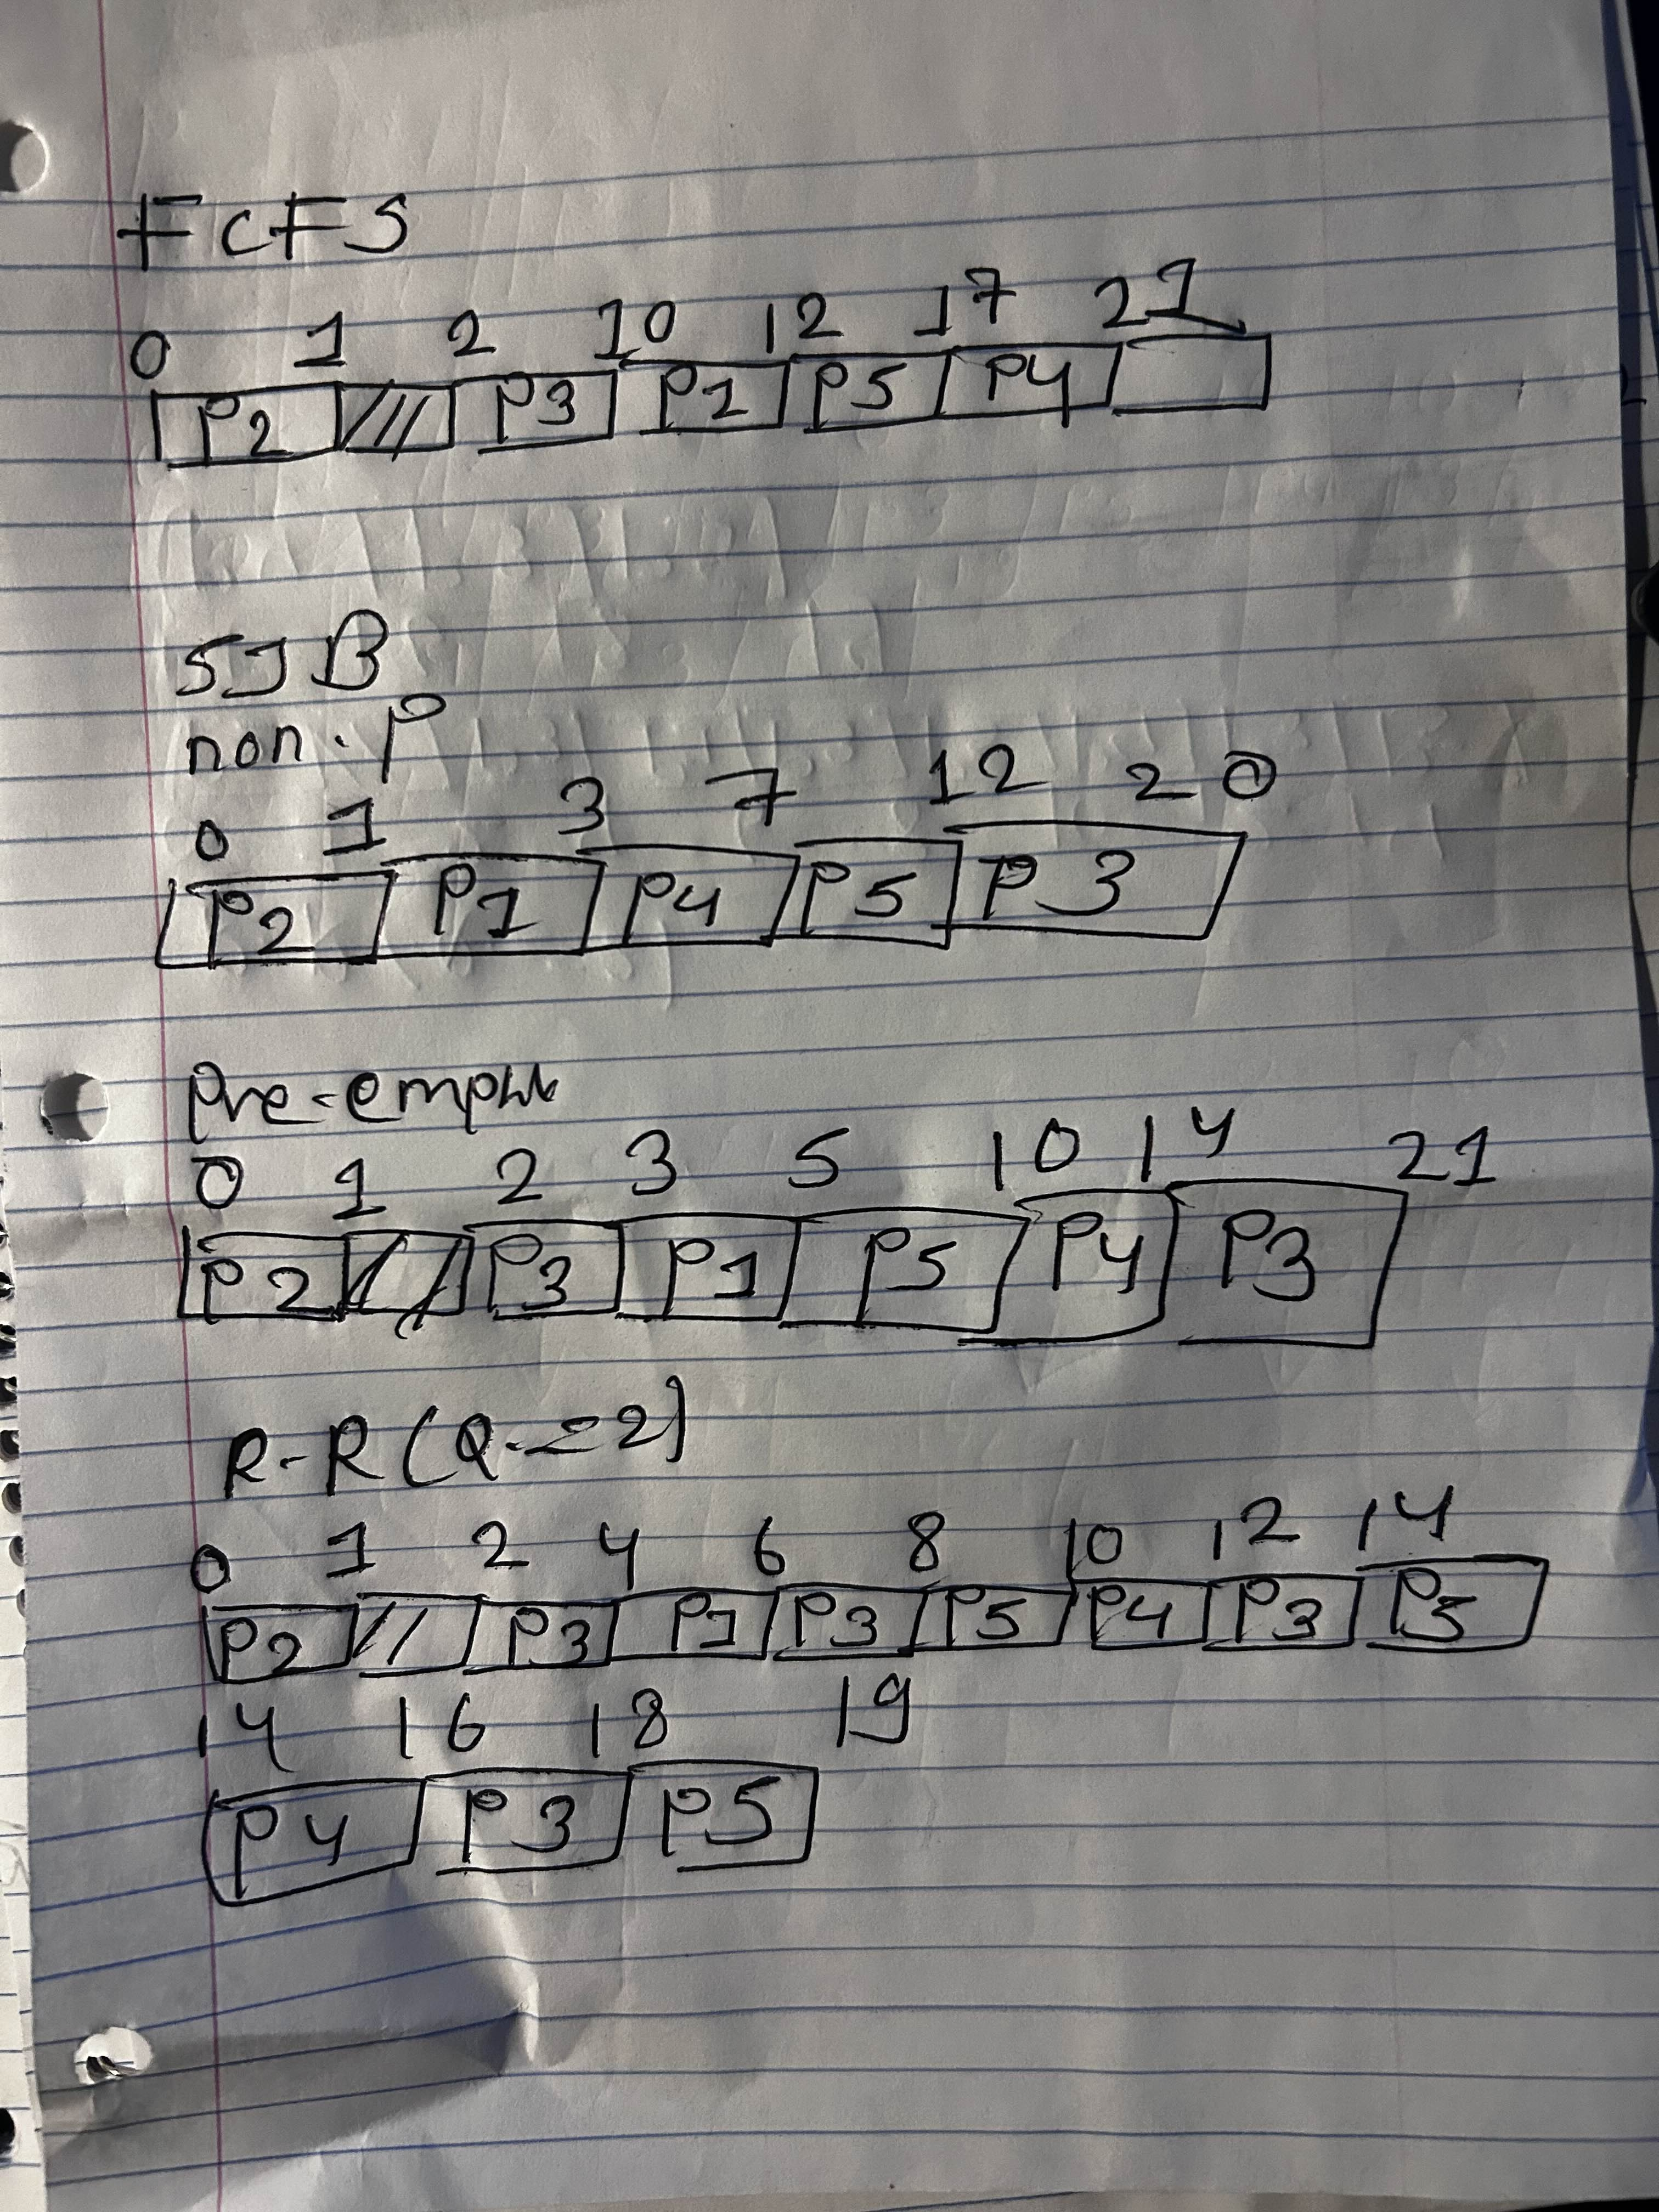 FCFS
0 1 2 10 12 17 21
P2 P3 P1 P5 P4
SJB
non-P
0 1 3 7 12 20
P2 P1 P4 P5 P3
0 1 2 3 5 10 14 21
P2 P3 P1 P5 P4 P3
R-R (Q-=2)
0 1 2 4 6 8 10 12 14
P2 P3 P1 P3 P5 P4 P3 P5
14 16 18 19
P4 P3 P5